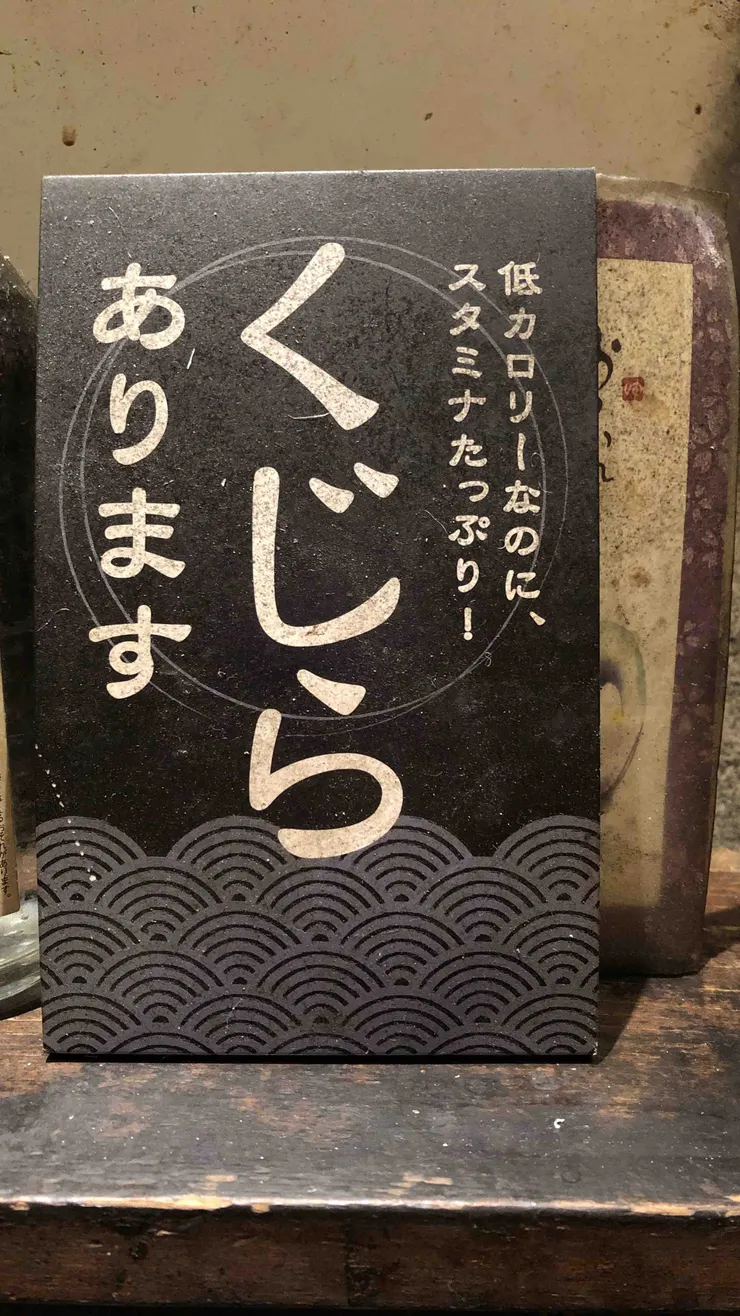 低カロリーなのに、
スタミナたっぷり！
くじら
あります